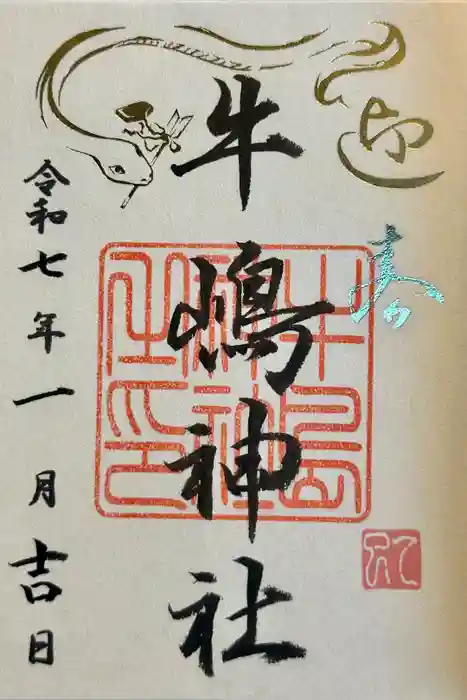 迎春
牛嶋神社
令和七年一月吉日
牛嶋神社之印